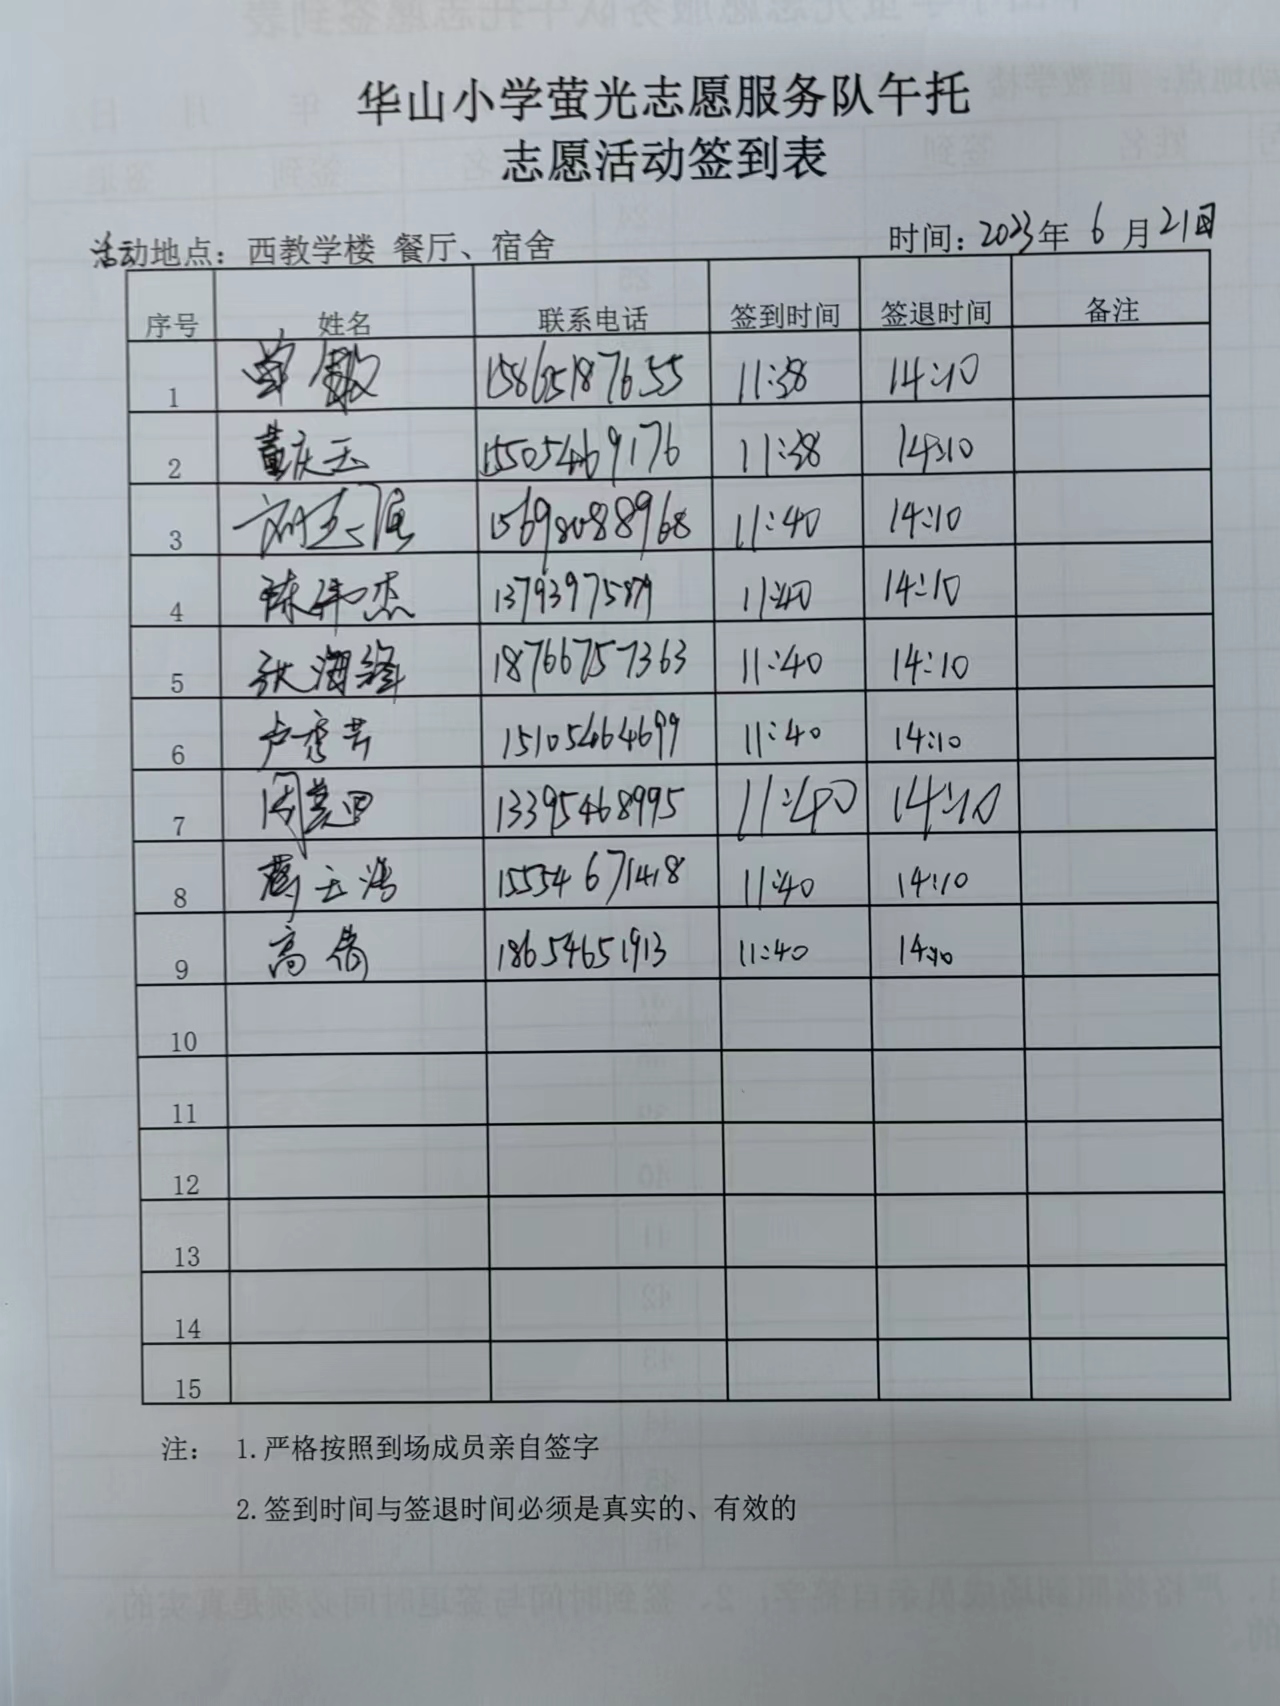 华山小学萤光志愿服务队午托
志愿活动签到表
活动地点：西教学楼 餐厅、宿舍 时间：2023年 6 月 21日
序号 姓名 联系电话 签到时间 签退时间 备注
1 单敏 15865187655 11:38 14:10
2 董庆玉 15505469176 11:38 14:10
3 15698088968 11:40 14:10
4 陈伟杰 11:40 14:10
5 张海峰 18766757363 11:40 14:10
6 卢秀芳 15105464699 11:40 14:10
7 13395468995 11:40 14:10
8 15554671418 11:40 14:10
9 高倩 18654651913 11:40 14:10
10
11
12
13
14
15
注： 1.严格按照到场成员亲自签字
2.签到时间与签退时间必须是真实的、有效的